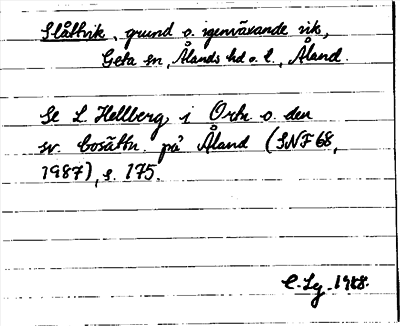 Slåttvik, grund o. igenväxande vik,
Geta sn, Ålands hd o. l., Åland.
Se L Hellberg i Ortn o. den
sv. bosättn. på Åland (SNF 68,
1987), s. 175.
1988.